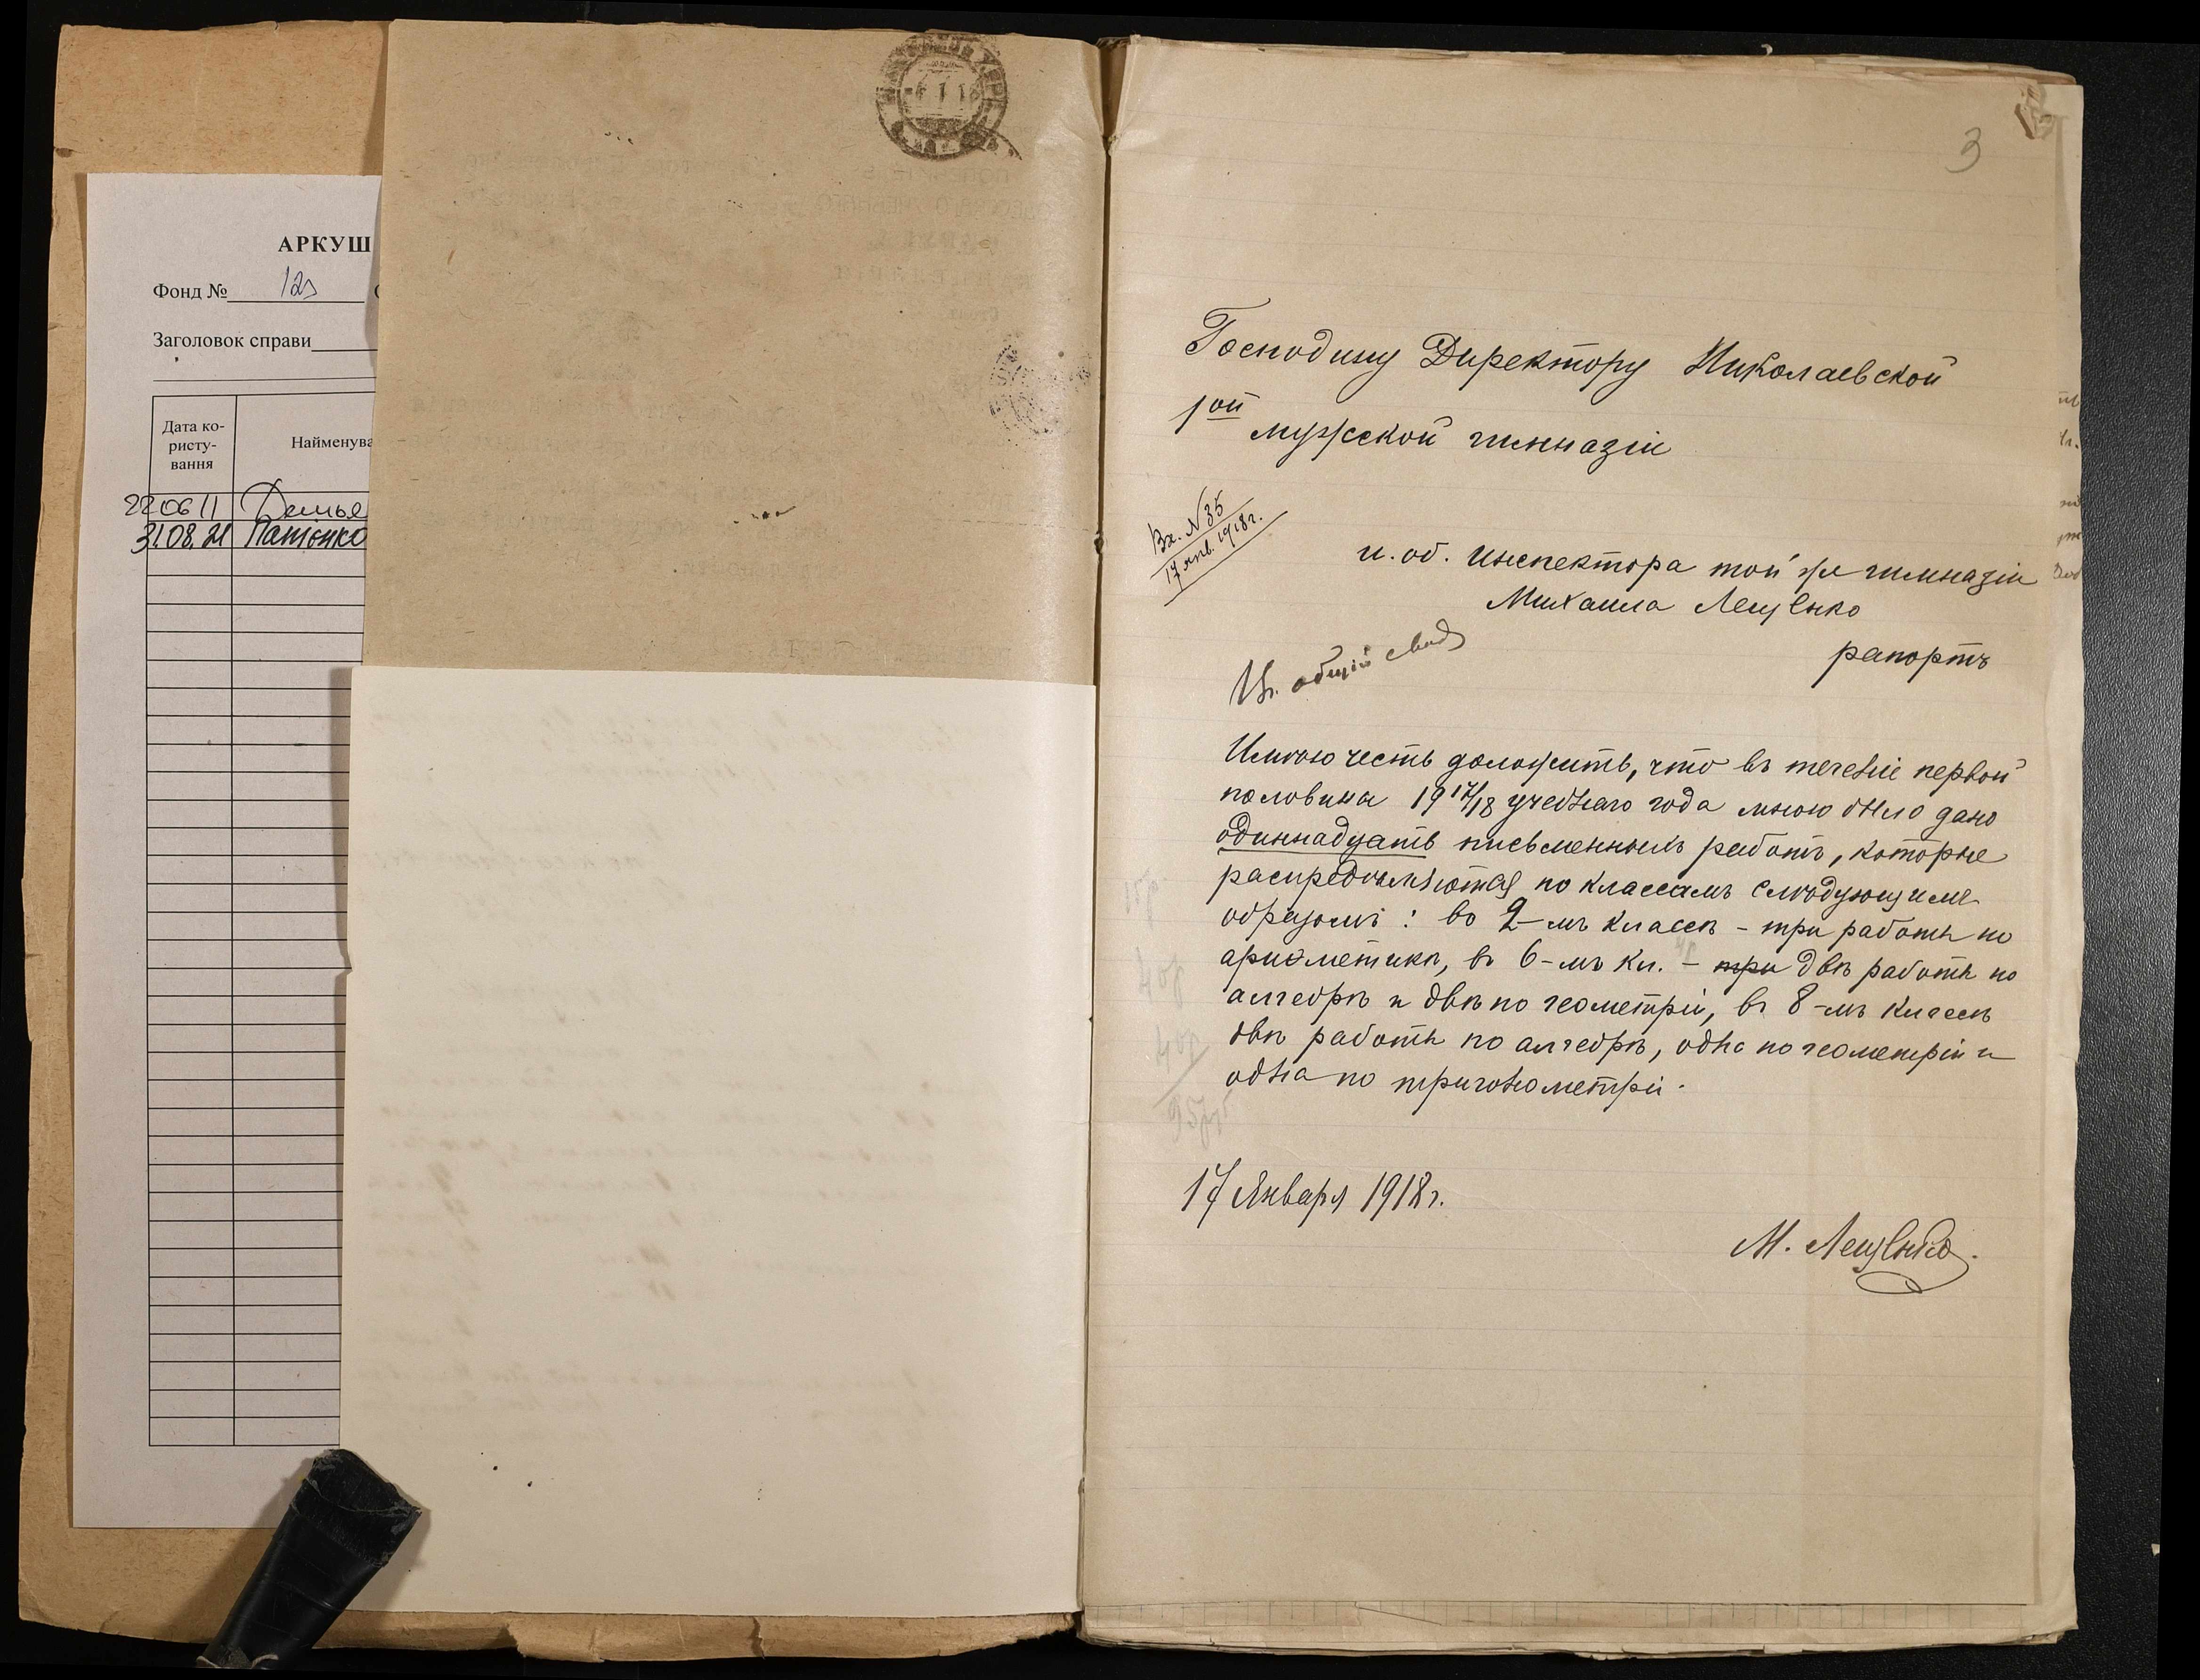 АРКУШ
Фонд № 123
Заголовок справи
Дата ко-
ристу-
вання
Найменува
22 06 11
31.08.21
3
Господину Директору Николаевской
1ой мужской гимназіи
Вх. № 35
17 янв. 1918 г.
и. об. инспектора той же гимназіи
Михаила Лещенко
рапортъ
общій свод
Имѣю честь доложить, что въ теченіе первой
половины 1917/18 учебнаго года мною было дано
одиннадцать письменныхъ работъ, которые
распредѣляются по классамъ слѣдующимъ
образомъ: во 2-мъ классѣ - три работы по
ариѳметикѣ, въ 6-мъ кл. - три двѣ работы по
алгебрѣ и двѣ по геометріи, въ 8-мъ классѣ
двѣ работы по алгебрѣ, одна по геометріи и
одна по тригонометріи.
15р.
40р
40р
95р
17 Января 1918 г.
М. Лещенко.